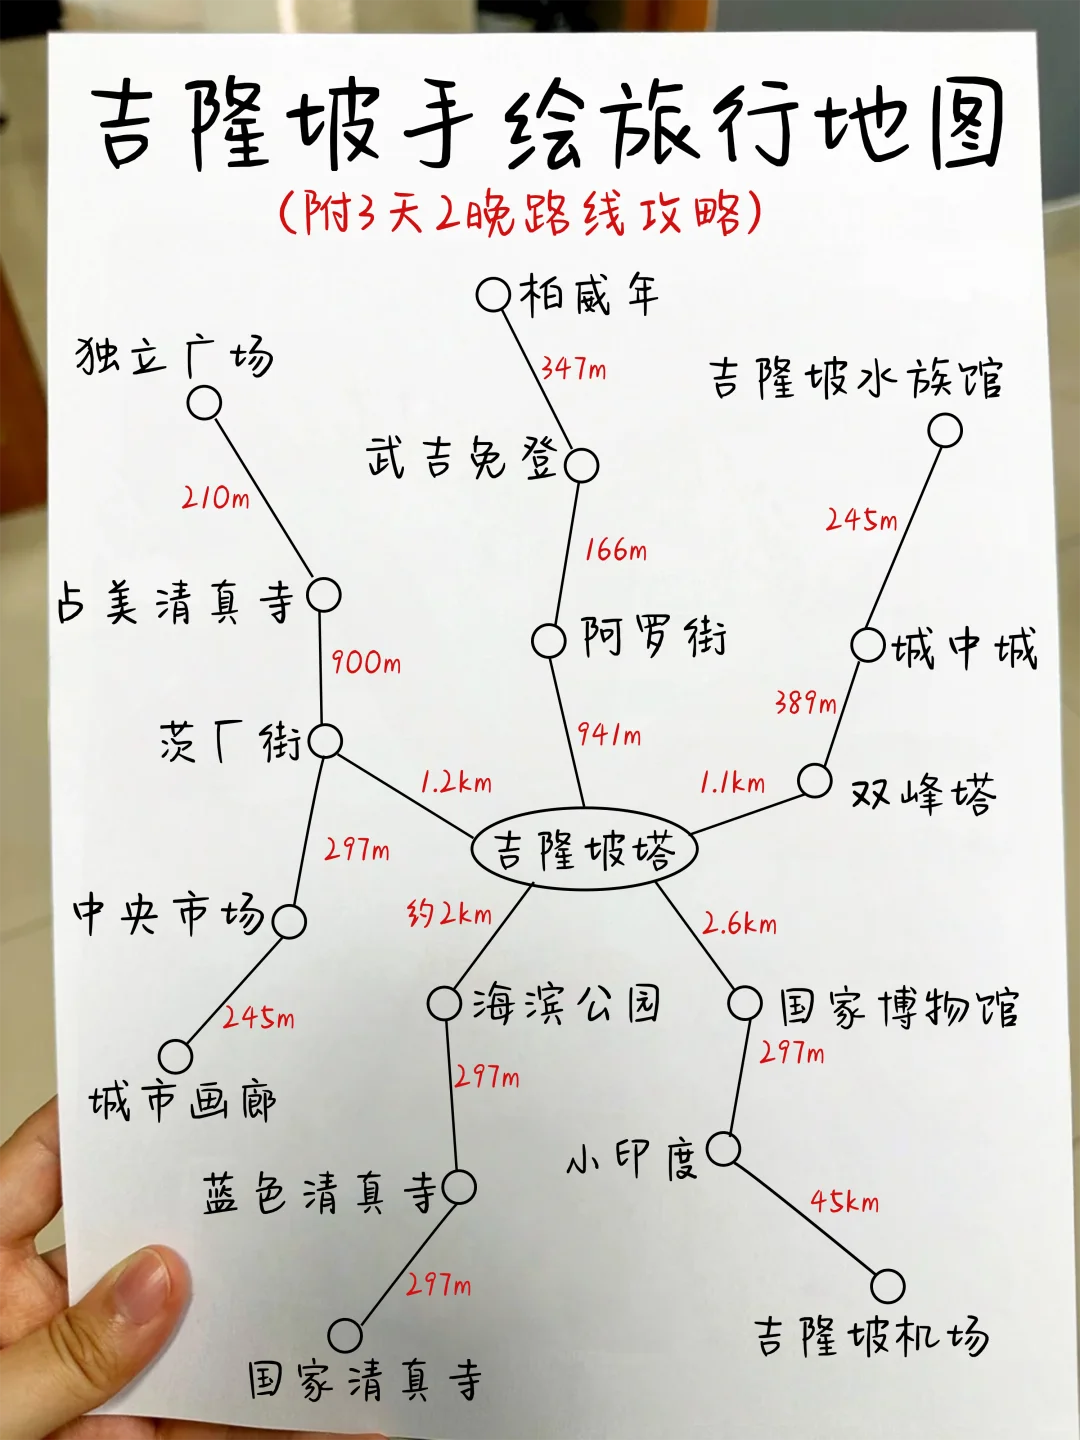 吉隆坡手绘旅行地图
(附3天2晚路线攻略)
柏威年
独立广场
347m
吉隆坡水族馆
武吉免登
210m
245m
166m
占美清真寺
阿罗街
城中城
900m
389m
茨厂街
941m
1.2km
1.1km
双峰塔
吉隆坡塔
297m
中央市场
约2km
2.6km
海滨公园
国家博物馆
245m
297m
城市画廊
297m
小印度
蓝色清真寺
45km
297m
吉隆坡机场
国家清真寺